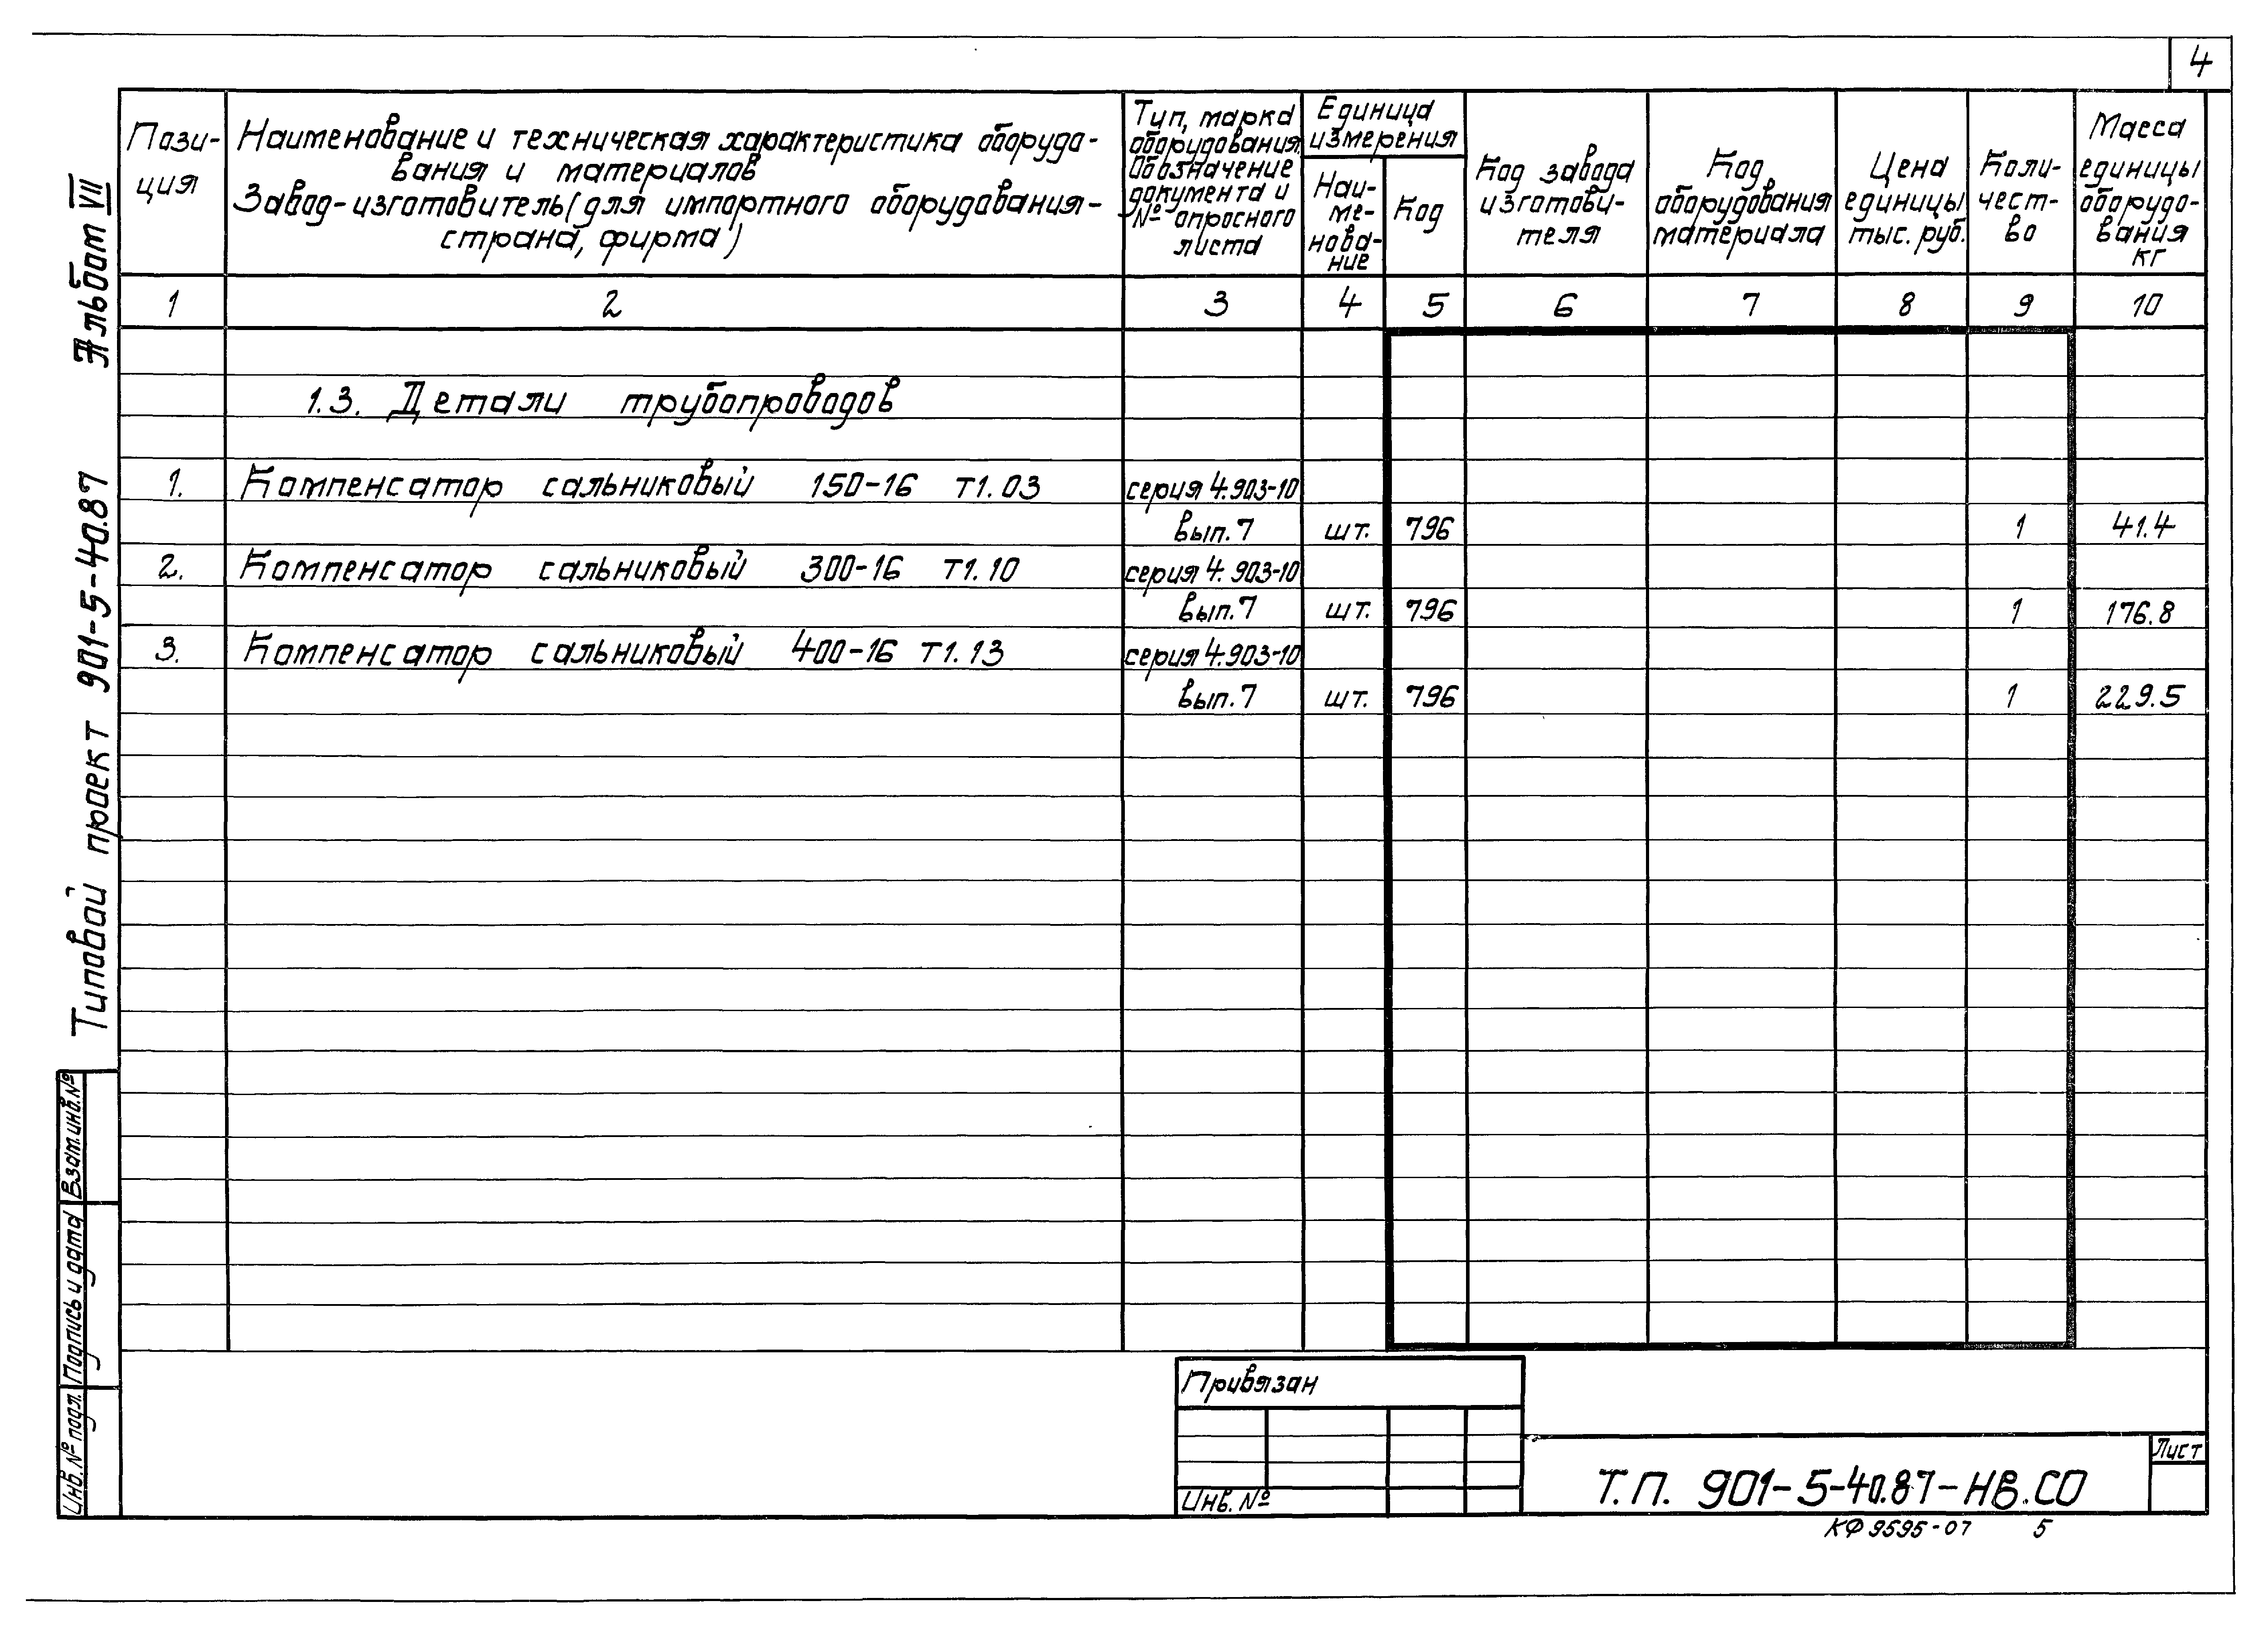 4
Пози-
ция
Наименование и техническая характеристика оборудо-
вания и материалов
Завод-изготовитель (для импортного оборудования-
страна, фирма)
Тип, марка
оборудования.
Обозначение
документа и
№ опросного
листа
Единица
измерения
Наи-
ме-
нова-
ние
Код
Код завода
изготови-
теля
Код
оборудования
материала
Цена
единицы
тыс. руб.
Коли-
чест-
во
Масса
единицы
оборудо-
вания
кг
1 2 3 4 5 6 7 8 9 10
1.3. Детали трубопроводов
1. Компенсатор сальниковый 150-16 Т1.03 серия 4.903-10
вып.7 шт. 796 1 41.4
2. Компенсатор сальниковый 300-16 Т1.10 серия 4.903-10
вып.7 шт. 796 1 176.8
3. Компенсатор сальниковый 400-16 Т1.13 серия 4.903-10
вып.7 шт. 796 1 229.5
Типовой проект 901-5-40.87 Альбом VII
Взат.инв.№
Подпись и дата
Инв.№ подл.
Привязан
Инв. №
Т.П. 901-5-40.87-НВ.СО
Лист
КФ 9595-07 5